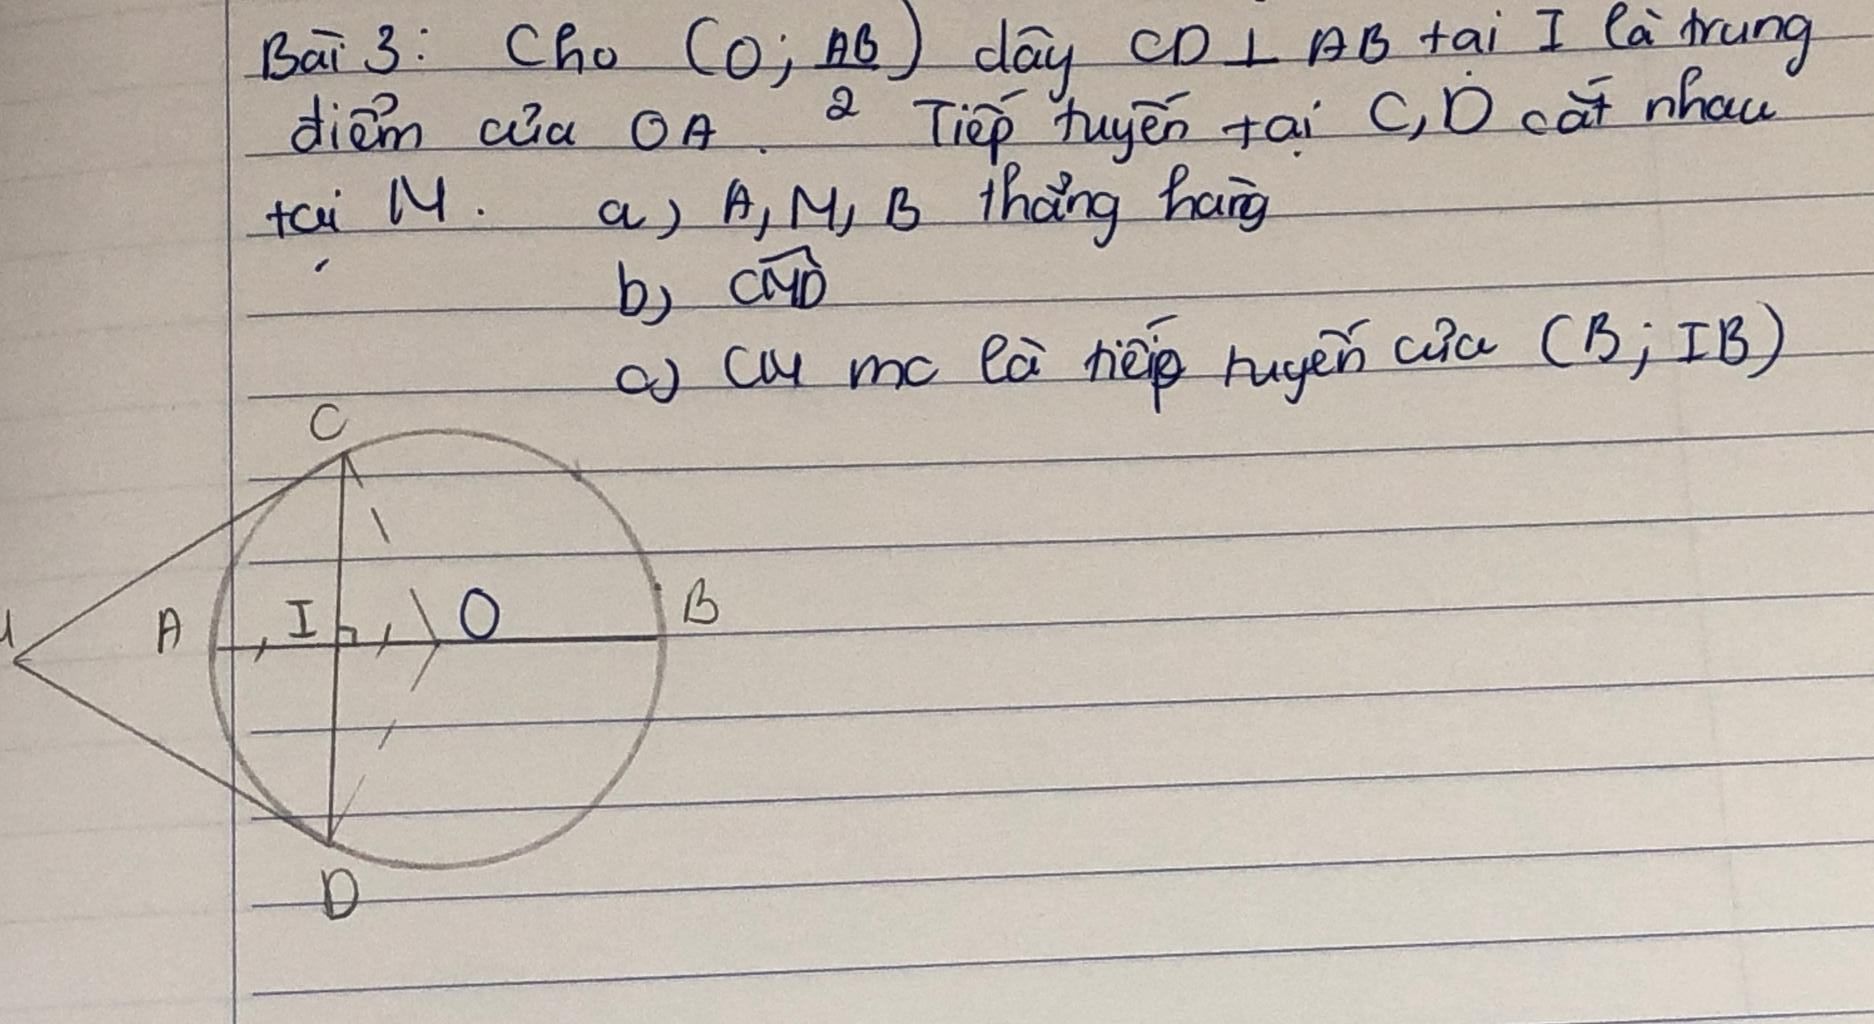 Bài 3: Cho (O; AB/2) dây CD ⊥ AB tại I là trung
điểm của OA. Tiếp tuyến tại C, D cắt nhau
tại M. a) A, M, B thẳng hàng
b) \widehat{CMD}
c) CM mc là tiếp tuyến của (B; IB)
C
M A I O B
D